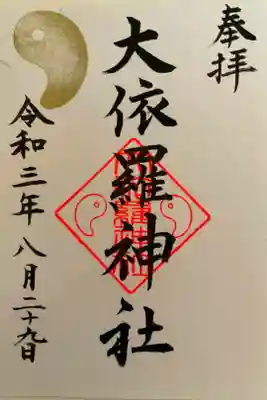 奉拝
大依羅神社
令和三年八月二十九日